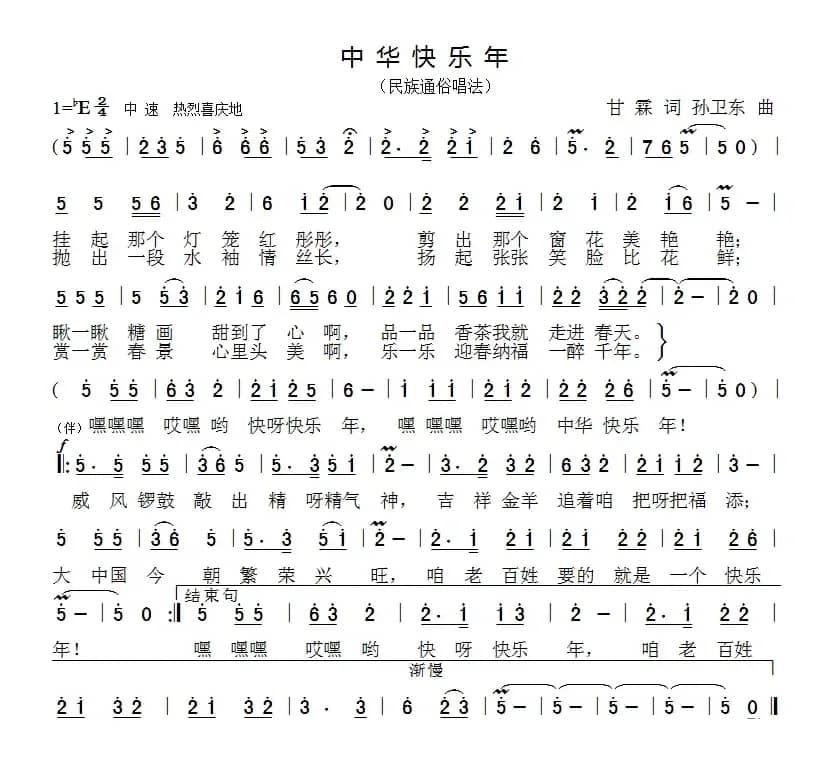 中华快乐年
（民族通俗唱法）
1=♭E 2/4 中 速 热烈喜庆地 甘 霖 词 孙卫东 曲
( 5 5 5 | 2 3 5 | 6 6 6 | 5 3 2 | 2 · 2 2 1 | 2 6 | 5 · 2 | 7 6 5 | 5 0 ) |
5 5 5 5 6 | 3 2 | 6 1 2 | 2 0 | 2 2 2 2 1 | 2 1 | 2 1 6 | 5 － |
挂 起 那个 灯 笼 红 彤彤， 剪 出 那个 窗 花 美 艳 艳；
抛 出 一段 水 袖 情 丝长， 扬 起 张张 笑 脸 比 花 鲜；
5 5 5 5 | 5 5 3 | 2 1 6 | 6 5 6 0 | 2 2 2 1 | 5 6 1 1 | 2 2 3 2 2 | 2 － | 2 0 |
瞅一瞅 糖 画 甜到了 心 啊， 品一品 香茶我就 走进 春天。
赏一赏 春 景 心里头 美 啊， 乐一乐 迎春纳福 一醉 千年。
( 5 5 5 | 6 3 2 | 2 1 2 5 | 6 － | 5 5 5 | 6 3 2 | 1 2 2 2 6 | 5 － | 5 0 ) |
（伴）嘿嘿嘿 哎嘿 哟 快呀快乐 年， 嘿 嘿嘿 哎嘿哟 中华 快乐 年！
f
‖: 5 · 5 5 5 | 3 6 5 | 5 · 3 5 1 | 2 － | 3 · 2 3 2 | 6 3 2 | 2 1 1 2 | 3 － |
威 风 锣鼓 敲 出 精 呀精气 神， 吉 祥 金羊 追着咱 把呀把福 添；
5 5 5 | 3 6 6 | 5 · 3 5 1 | 2 － | 2 · 1 2 1 | 2 2 1 | 2 1 2 6 |
大 中国 今 朝 繁 荣 兴 旺， 咱 老 百姓 要的 就是 一个 快乐
结束句
5 － | 5 0 :‖ 5 5 5 | 6 3 2 | 2 · 1 1 3 | 2 － | 2 · 1 2 2 |
年！ 嘿 嘿嘿 哎嘿 哟 快 呀 快乐 年， 咱 老 百姓
渐慢
2 1 3 2 | 2 1 2 3 | 3 · 3 | 6 2 3 | 5 － | 5 － | 5 － | 5 0 ‖